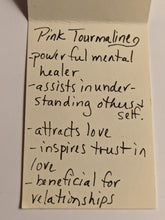 Pink Tourmaline
-powerful mental
healer
-assists in under-
standing others &
self.
-attracts love
-inspires trust in
love
-beneficial for
relationships